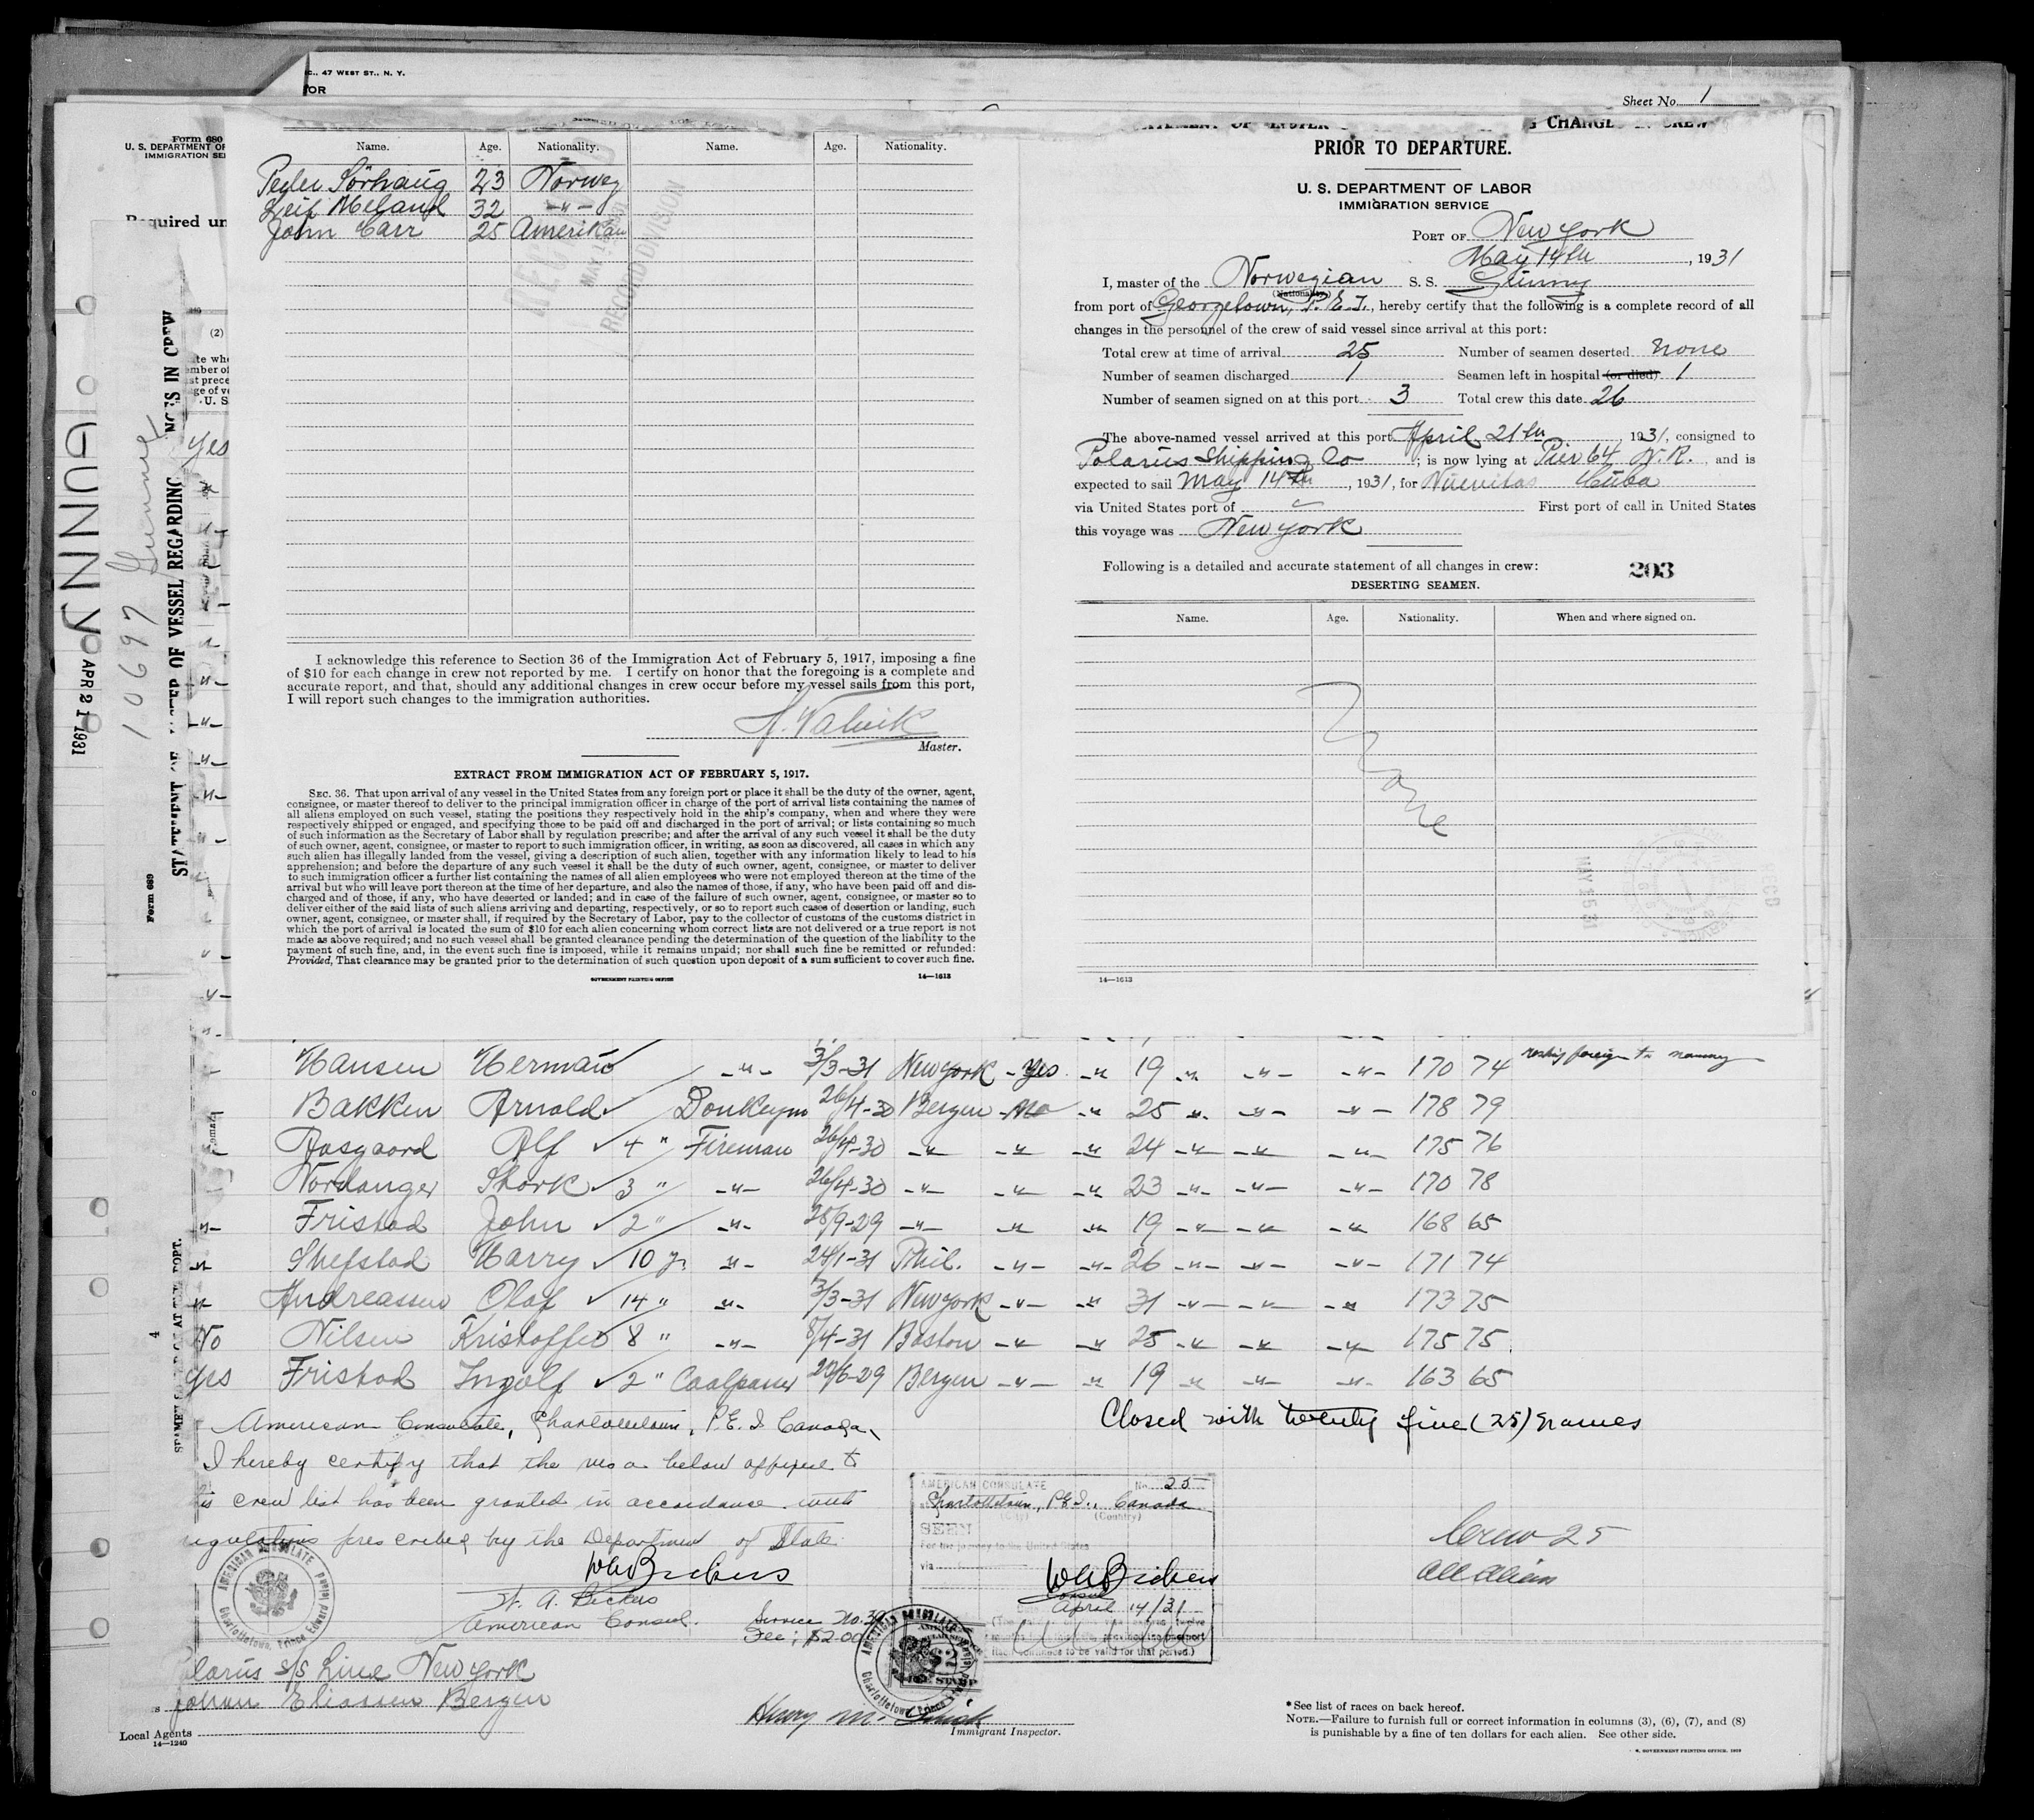 C., 47 WEST ST., N. Y.
OR
Sheet No. 1
Form 680
U. S. DEPARTMENT OF
IMMIGRATION SE
Required un
(2)
GUNNY
APR 21 1931
10697 Gunny
STATEMENT OF MASTER OF VESSEL REGARDING CHANGES IN CREW
Form 689
Name. Age. Nationality. Name. Age. Nationality.
Peder Sörhaug 23 Norweg
Leif Meland 32 -"-
John Carr 25 Amerikan
RECORD DIVISION
I acknowledge this reference to Section 36 of the Immigration Act of February 5, 1917, imposing a fine
of $10 for each change in crew not reported by me. I certify on honor that the foregoing is a complete and
accurate report, and that, should any additional changes in crew occur before my vessel sails from this port,
I will report such changes to the immigration authorities.
Master.
EXTRACT FROM IMMIGRATION ACT OF FEBRUARY 5, 1917.
SEC. 36. That upon arrival of any vessel in the United States from any foreign port or place it shall be the duty of the owner, agent,
consignee, or master thereof to deliver to the principal immigration officer in charge of the port of arrival lists containing the names of
all aliens employed on such vessel, stating the positions they respectively hold in the ship's company, when and where they were
respectively shipped or engaged, and specifying those to be paid off and discharged in the port of arrival; or lists containing so much
of such information as the Secretary of Labor shall by regulation prescribe; and after the arrival of any such vessel it shall be the duty
of such owner, agent, consignee, or master to report to such immigration officer, in writing, as soon as discovered, all cases in which any
such alien has illegally landed from the vessel, giving a description of such alien, together with any information likely to lead to his
apprehension; and before the departure of any such vessel it shall be the duty of such owner, agent, consignee, or master to deliver
to such immigration officer a further list containing the names of all alien employees who were not employed thereon at the time of the
arrival but who will leave port thereon at the time of her departure, and also the names of those, if any, who have been paid off and dis-
charged and of those, if any, who have deserted or landed; and in case of the failure of such owner, agent, consignee, or master so to
deliver either of the said lists of such aliens arriving and departing, respectively, or so to report such cases of desertion or landing, such
owner, agent, consignee, or master shall, if required by the Secretary of Labor, pay to the collector of customs of the customs district in
which the port of arrival is located the sum of $10 for each alien concerning whom correct lists are not delivered or a true report is not
made as above required; and no such vessel shall be granted clearance pending the determination of the question of the liability to the
payment of such fine, and, in the event such fine is imposed, while it remains unpaid; nor shall such fine be remitted or refunded:
Provided, That clearance may be granted prior to the determination of such question upon deposit of a sum sufficient to cover such fine.
GOVERNMENT PRINTING OFFICE 14—1613
PRIOR TO DEPARTURE.
U. S. DEPARTMENT OF LABOR
IMMIGRATION SERVICE
PORT OF New York
May 14th, 1931
I, master of the Norwegian S. S. Gunny
(Nationality)
from port of Georgetown, P.E.I., hereby certify that the following is a complete record of all
changes in the personnel of the crew of said vessel since arrival at this port:
Total crew at time of arrival 25 Number of seamen deserted none
Number of seamen discharged 1 Seamen left in hospital (or died) 1
Number of seamen signed on at this port 3 Total crew this date 26
The above-named vessel arrived at this port April 21th, 1931, consigned to
Polarus Shipping Co; is now lying at Pier 64 N.R. and is
expected to sail May 14th, 1931, for Nuevitas Cuba
via United States port of First port of call in United States
this voyage was New York
Following is a detailed and accurate statement of all changes in crew: 203
DESERTING SEAMEN.
Name. Age. Nationality. When and where signed on.
None
MAY 15 31
REC'D
14—1613
Hansen Herman -"- 3/3-31 New York - Yes -"- 19 -"- -"- -"- 170 74
Bakken Arnold Donkeym 26/4-30 Bergen -No -"- 25 -"- -"- -"- 178 79
Aasgaard Alf 4 " Fireman 26/4-30 -"- -"- -"- 24 -"- -"- -"- 175 76
Nordanger Shork 3 " -"- 26/4-30 -"- -"- -"- 23 -"- -"- -"- 170 78
Fristad John 2 " -"- 25/9-29 -"- -"- -"- 19 -"- -"- -"- 168 65
Shefstad Harry 10 yr -"- 24/1-31 Phil. -"- -"- 26 -"- -"- -"- 171 74
Andreassen Olaf 14 " -"- 3/3-31 New York -"- -"- 31 -"- -"- -"- 173 75
No Nilsen Kristoffer 8 " -"- 8/4-31 Boston -"- -"- 25 -"- -"- -"- 175 75
Yes Fristad Ingolf 2 " Coalpasser 29/6-29 Bergen -"- -"- 19 -"- -"- -"- 163 65
American Consulate, Charlottetown, P.E.I. Canada,
Closed with twenty five (25) names
I hereby certify that the visa below affixed to
this crew list has been granted in accordance with
regulations prescribed by the Department of State.
W A Bickers
W. A. Bickers
American Consul.
Service No. 39
Fee: $2.00
AMERICAN CONSULATE
Charlottetown, Prince Edward Island
AMERICAN CONSULATE No. 25
Charlottetown, P.E.I., Canada
(City) (Country)
SEEN
For the journey to the United States
via
W A Bickers
Consul
Date April 14/31
Crew 25
All Alien
Polarus S/S Line New York
Johan Eliassen Bergen
Local Agents
14—1240
Immigrant Inspector.
*See list of races on back hereof.
NOTE.—Failure to furnish full or correct information in columns (3), (6), (7), and (8)
is punishable by a fine of ten dollars for each alien. See other side.